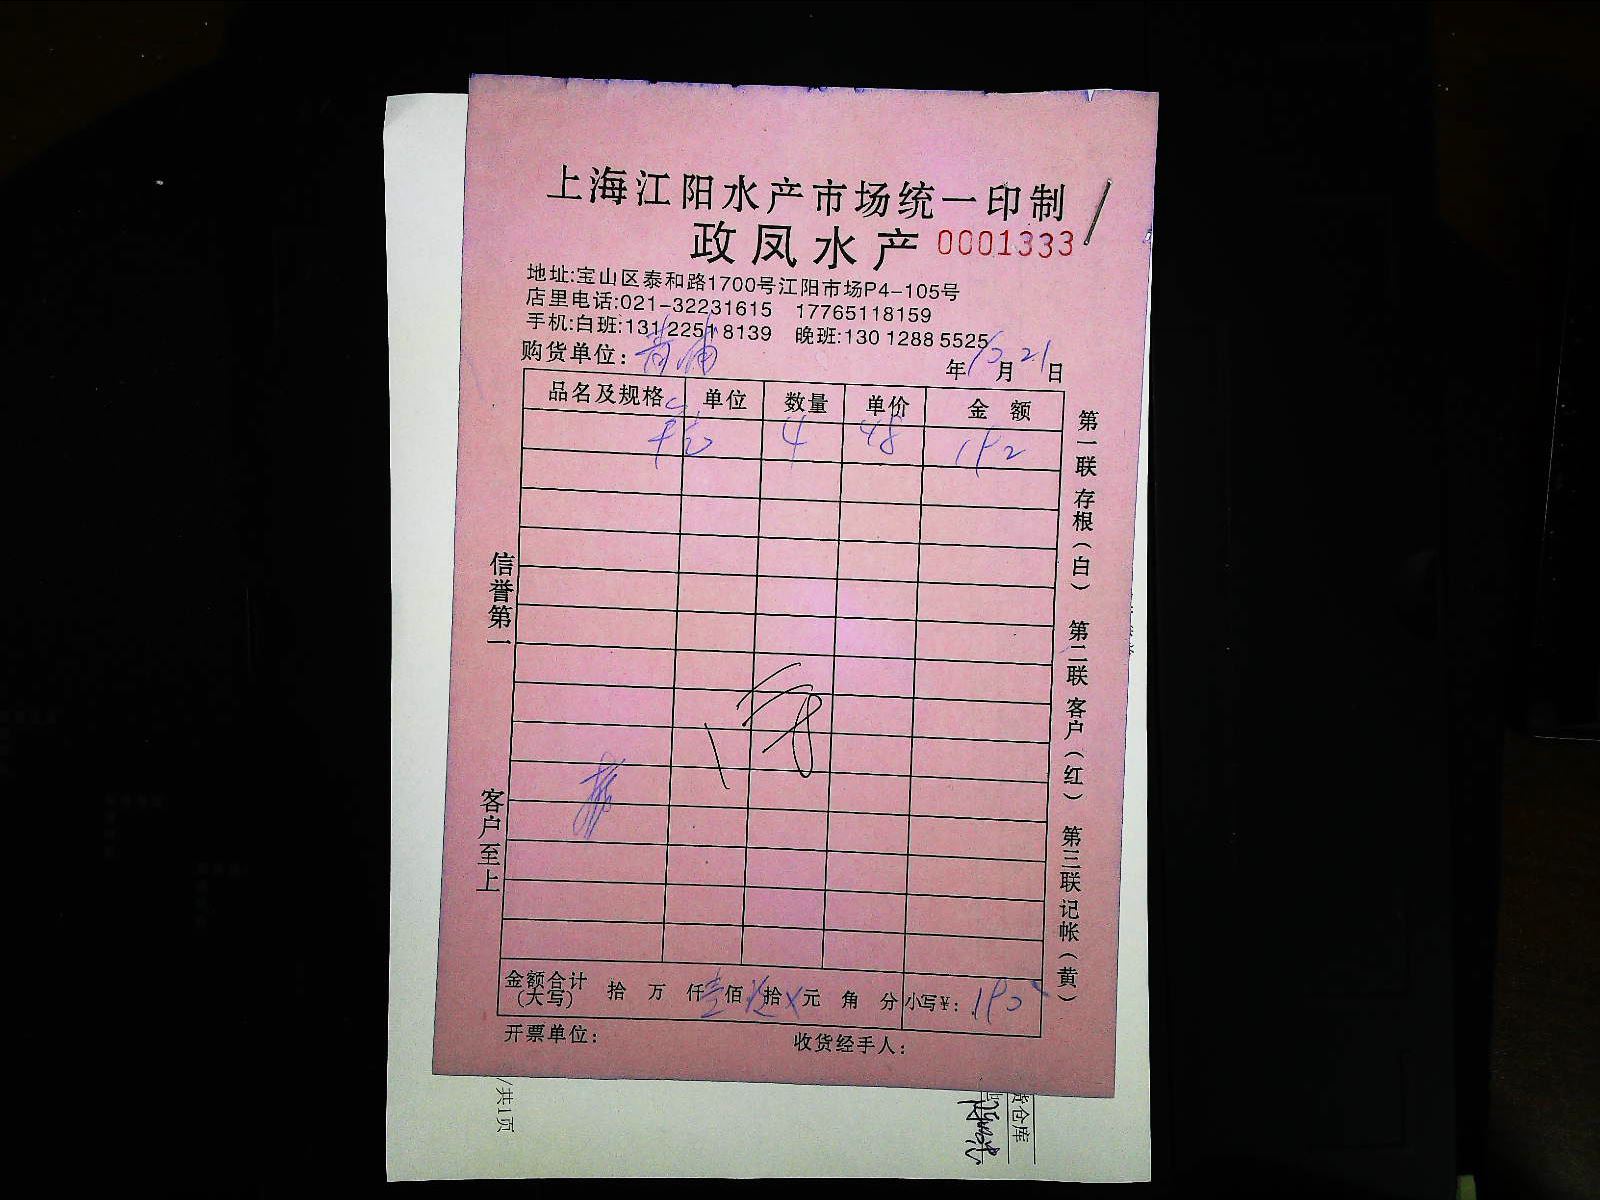 上海江阳水产市场统一印制
政凤水产 0001333
地址:宝山区泰和路1700号江阳市场P4-105号
店里电话:021-32231615 17765118159
手机:白班:131 2251 8139 晚班:130 1288 5525
购货单位: 黄浦 年 月 21 日
品名及规格 单位 数量 单价 金 额
4 48 192
信誉第一
客户至上
第一联 存根(白) 第二联 客户(红) 第三联 记帐(黄)
金额合计 拾 万 仟 壹 佰 拾 元 角 分 小写¥: 192
(大写)
开票单位: 收货经手人:
/共1页
货仓库